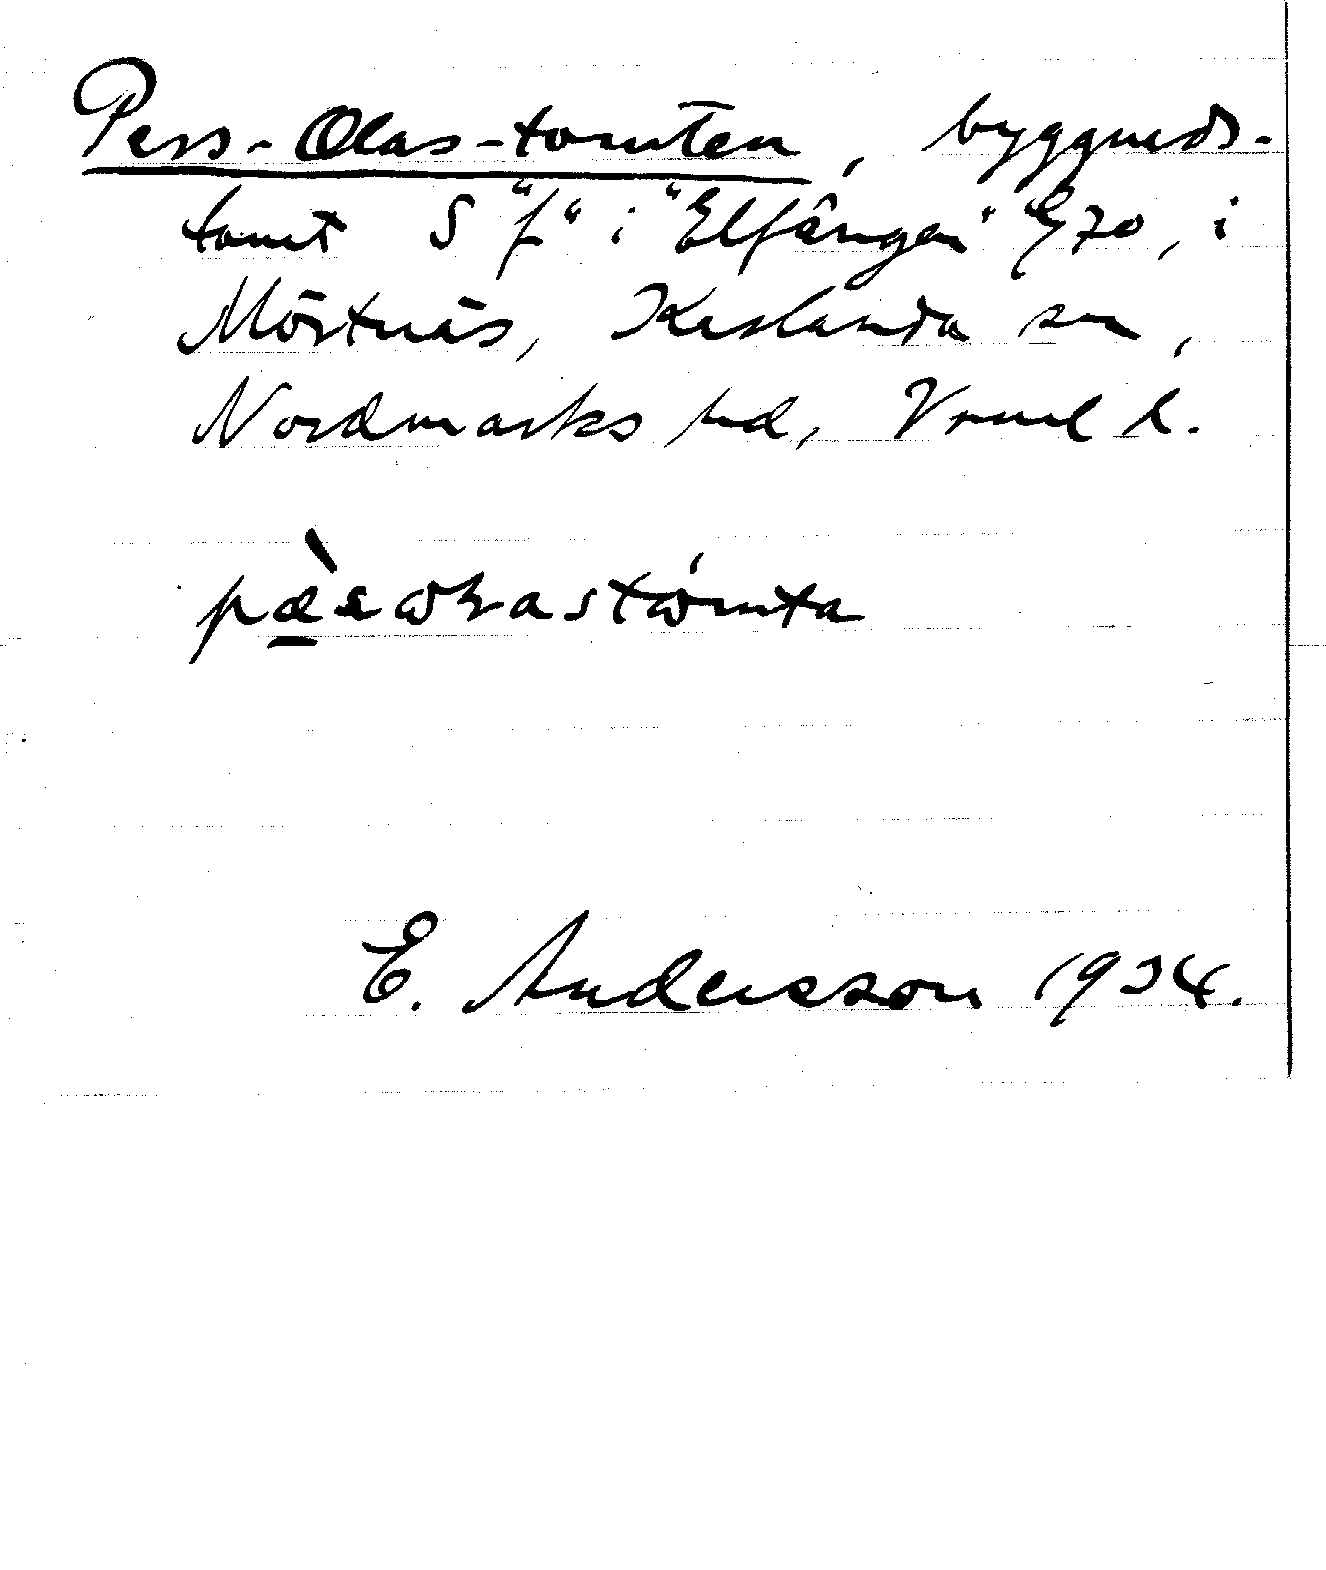 Pers-Olas-tomten, byggnads-
tomt S "f" i "Elfången" E70, i
Mörtnäs, Karlanda sn,
Nordmarks hd, Vrml l.
E. Andersson 1934.